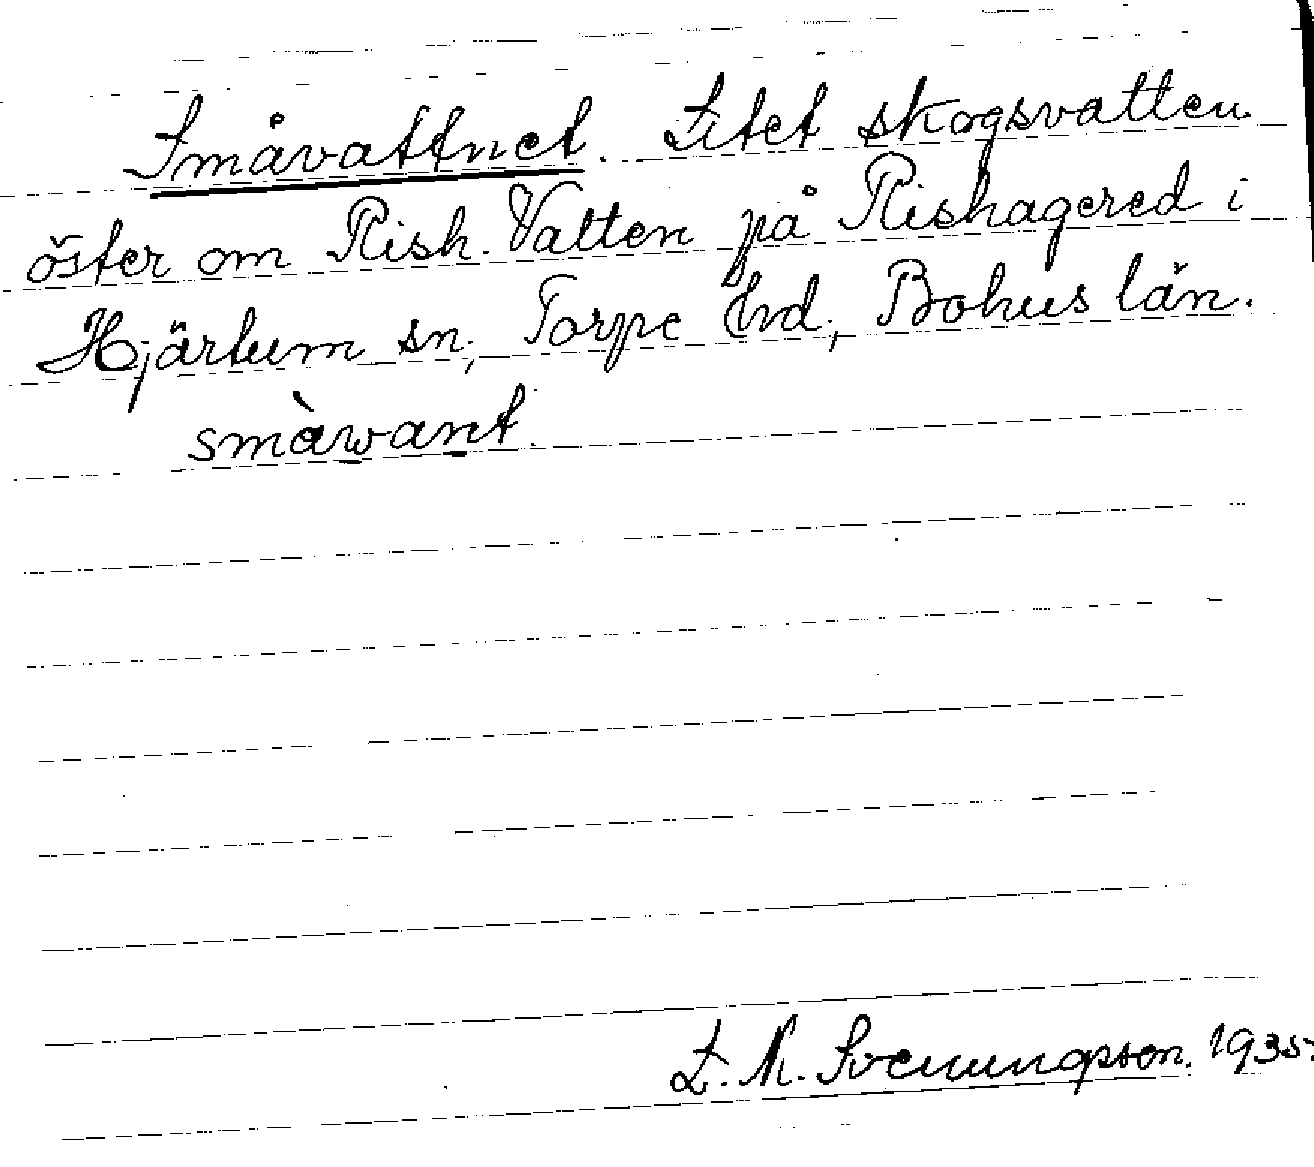 Småvattnet. Litet skogsvatten
öster om Rish. Vatten på Rishagered i
Hjärtum sn, Torpe hd, Bohus län.
smàwant.
L. M. Svenungsson. 1935.